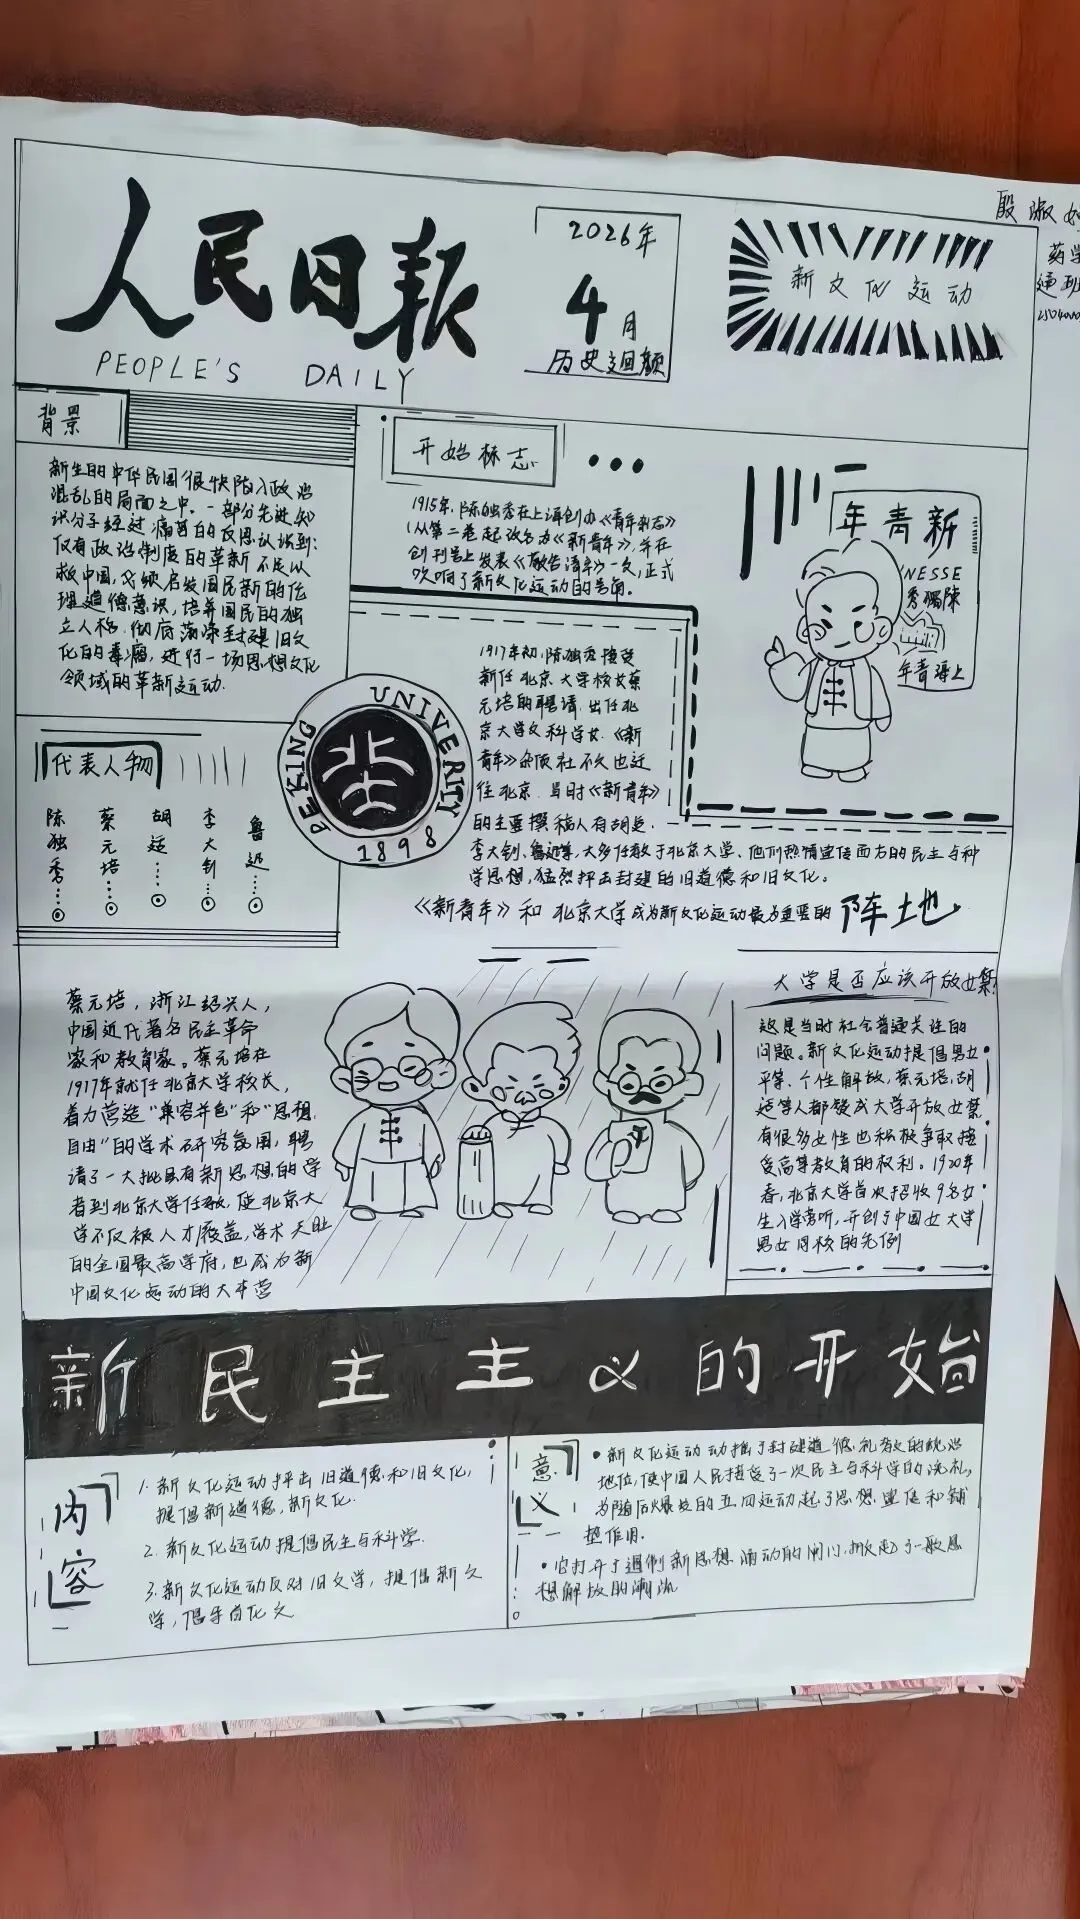 人民日报
PEOPLE'S DAILY
2026年
4月
历史迴顾
新文化运动
殷淑
药学
背景
新生的中华民国很快陷入政治
混乱的局面之中。一部分先进知
识分子经过痛苦的反思认识到:
仅有政治制度的革新不足以
救中国,必须启发国民新的伦
理道德意识,培养国民的独
立人格,彻底荡涤封建旧文
化的毒瘤,进行一场思想文化
领域的革新运动.
开始标志
1915年,陈独秀在上海创办《青年杂志》
(从第二卷起改名为《新青年》,并在
创刊号上发表《敬告清年》一文,正式
吹响了新文化运动的号角。
年青新
NESSE
秀獨陳
年青海上
1917年初,陈独秀接受
新任北京大学校长蔡
元培的聘请,出任北
京大学文科学长.《新
青年》杂质社不久也迁
往北京.当时《新青年》
的主要撰稿人有胡适.
李大钊、鲁迅等,大多任教于北京大学、他们热情宣传西方的民主与科
学思想,猛烈抨击封建的旧道德和旧文化。
《新青年》和北京大学成为新文化运动最为重要的阵地.
代表人物
陈独秀……
蔡元培……
胡适……
李大钊……
鲁迅……
PEKING UNIVERITY
1898
蔡元培,浙江绍兴人,
中国近代著名民主革命
家和教育家。蔡元培在
1917年就任北京大学校长,
着力营造"兼容并包"和"思想
自由"的学术研究氛围,聘
请了一大批具有新思想的学
者到北京大学任教,使北京大
学不仅被人才覆盖,学术天肚
的全国最高学府,也成为新
中国文化运动的大本营
大学是否应该开放女禁
这是当时社会普遍关注的
问题。新文化运动提倡男女
平等、个性解放,蔡元培,胡
适等人都赞成大学开放女禁
有很多女性也积极争取接
受高等教育的权利。1920年
春,北京大学首次招收9名女
生入学旁听,开创了中国女大学
男女同校的先例
新民主主义的开始
内容
1.新文化运动抨击旧道德和旧文化,
提倡新道德,新文化.
2.新文化运动提倡民主与科学.
3.新文化运动反对旧文学,提倡新文
学,倡导白化文
意义
•新文化运动动摇了封建道德礼教的统治
地位,使中国人民接受了一次民主与科学的洗礼,
为随后爆发的五四运动起了思想宣传和铺
垫作用.
•它打开了遏制新思想涌动的闸门,掀起了一股思
想解放的潮流